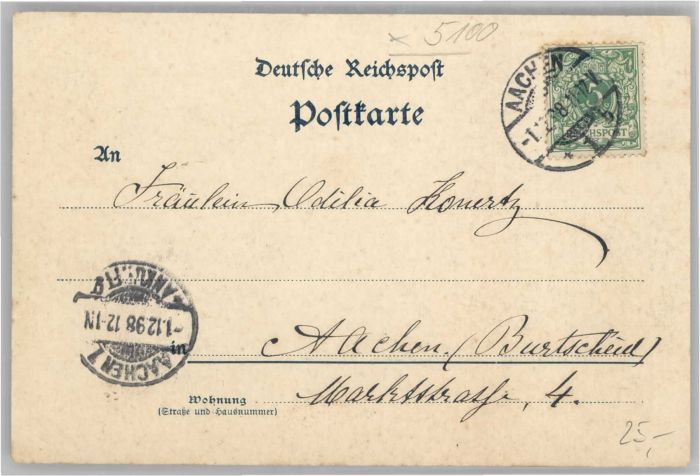 × 5100
Deutsche Reichspost
Postkarte
AACHEN
-1.12.98
1 b
5
REICHSPOST
An
Fräulein Odilia Konertz
ANKUNFT
-1.12.98 12-1N
AACHEN 1
in Aachen. (Burtscheid)
Wohnung
(Straße und Hausnummer)
Marktstrasse, 4.
25,-